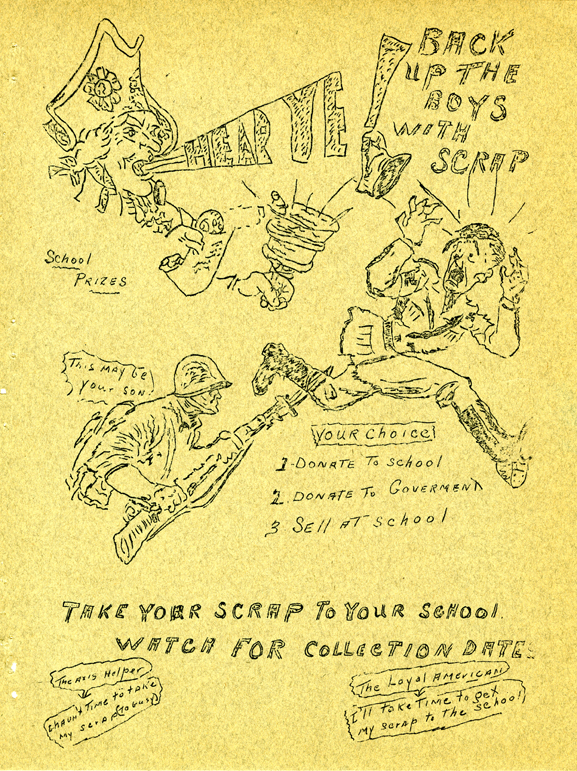 HEAR YE!
BACK
UP THE
BOYS
WITH
SCRAP
School
PRIZES
This may be
your son!
YOUR CHOICE
1-DONATE TO SCHOOL
2. DONATE TO GOVERMENT
3 SELL AT SCHOOL
TAKE YOUR SCRAP TO YOUR SCHOOL.
WATCH FOR COLLECTION DATES
The axis Helper
time to take
my scrap
The Loyal American
I'll take Time to get
my scrap to the school